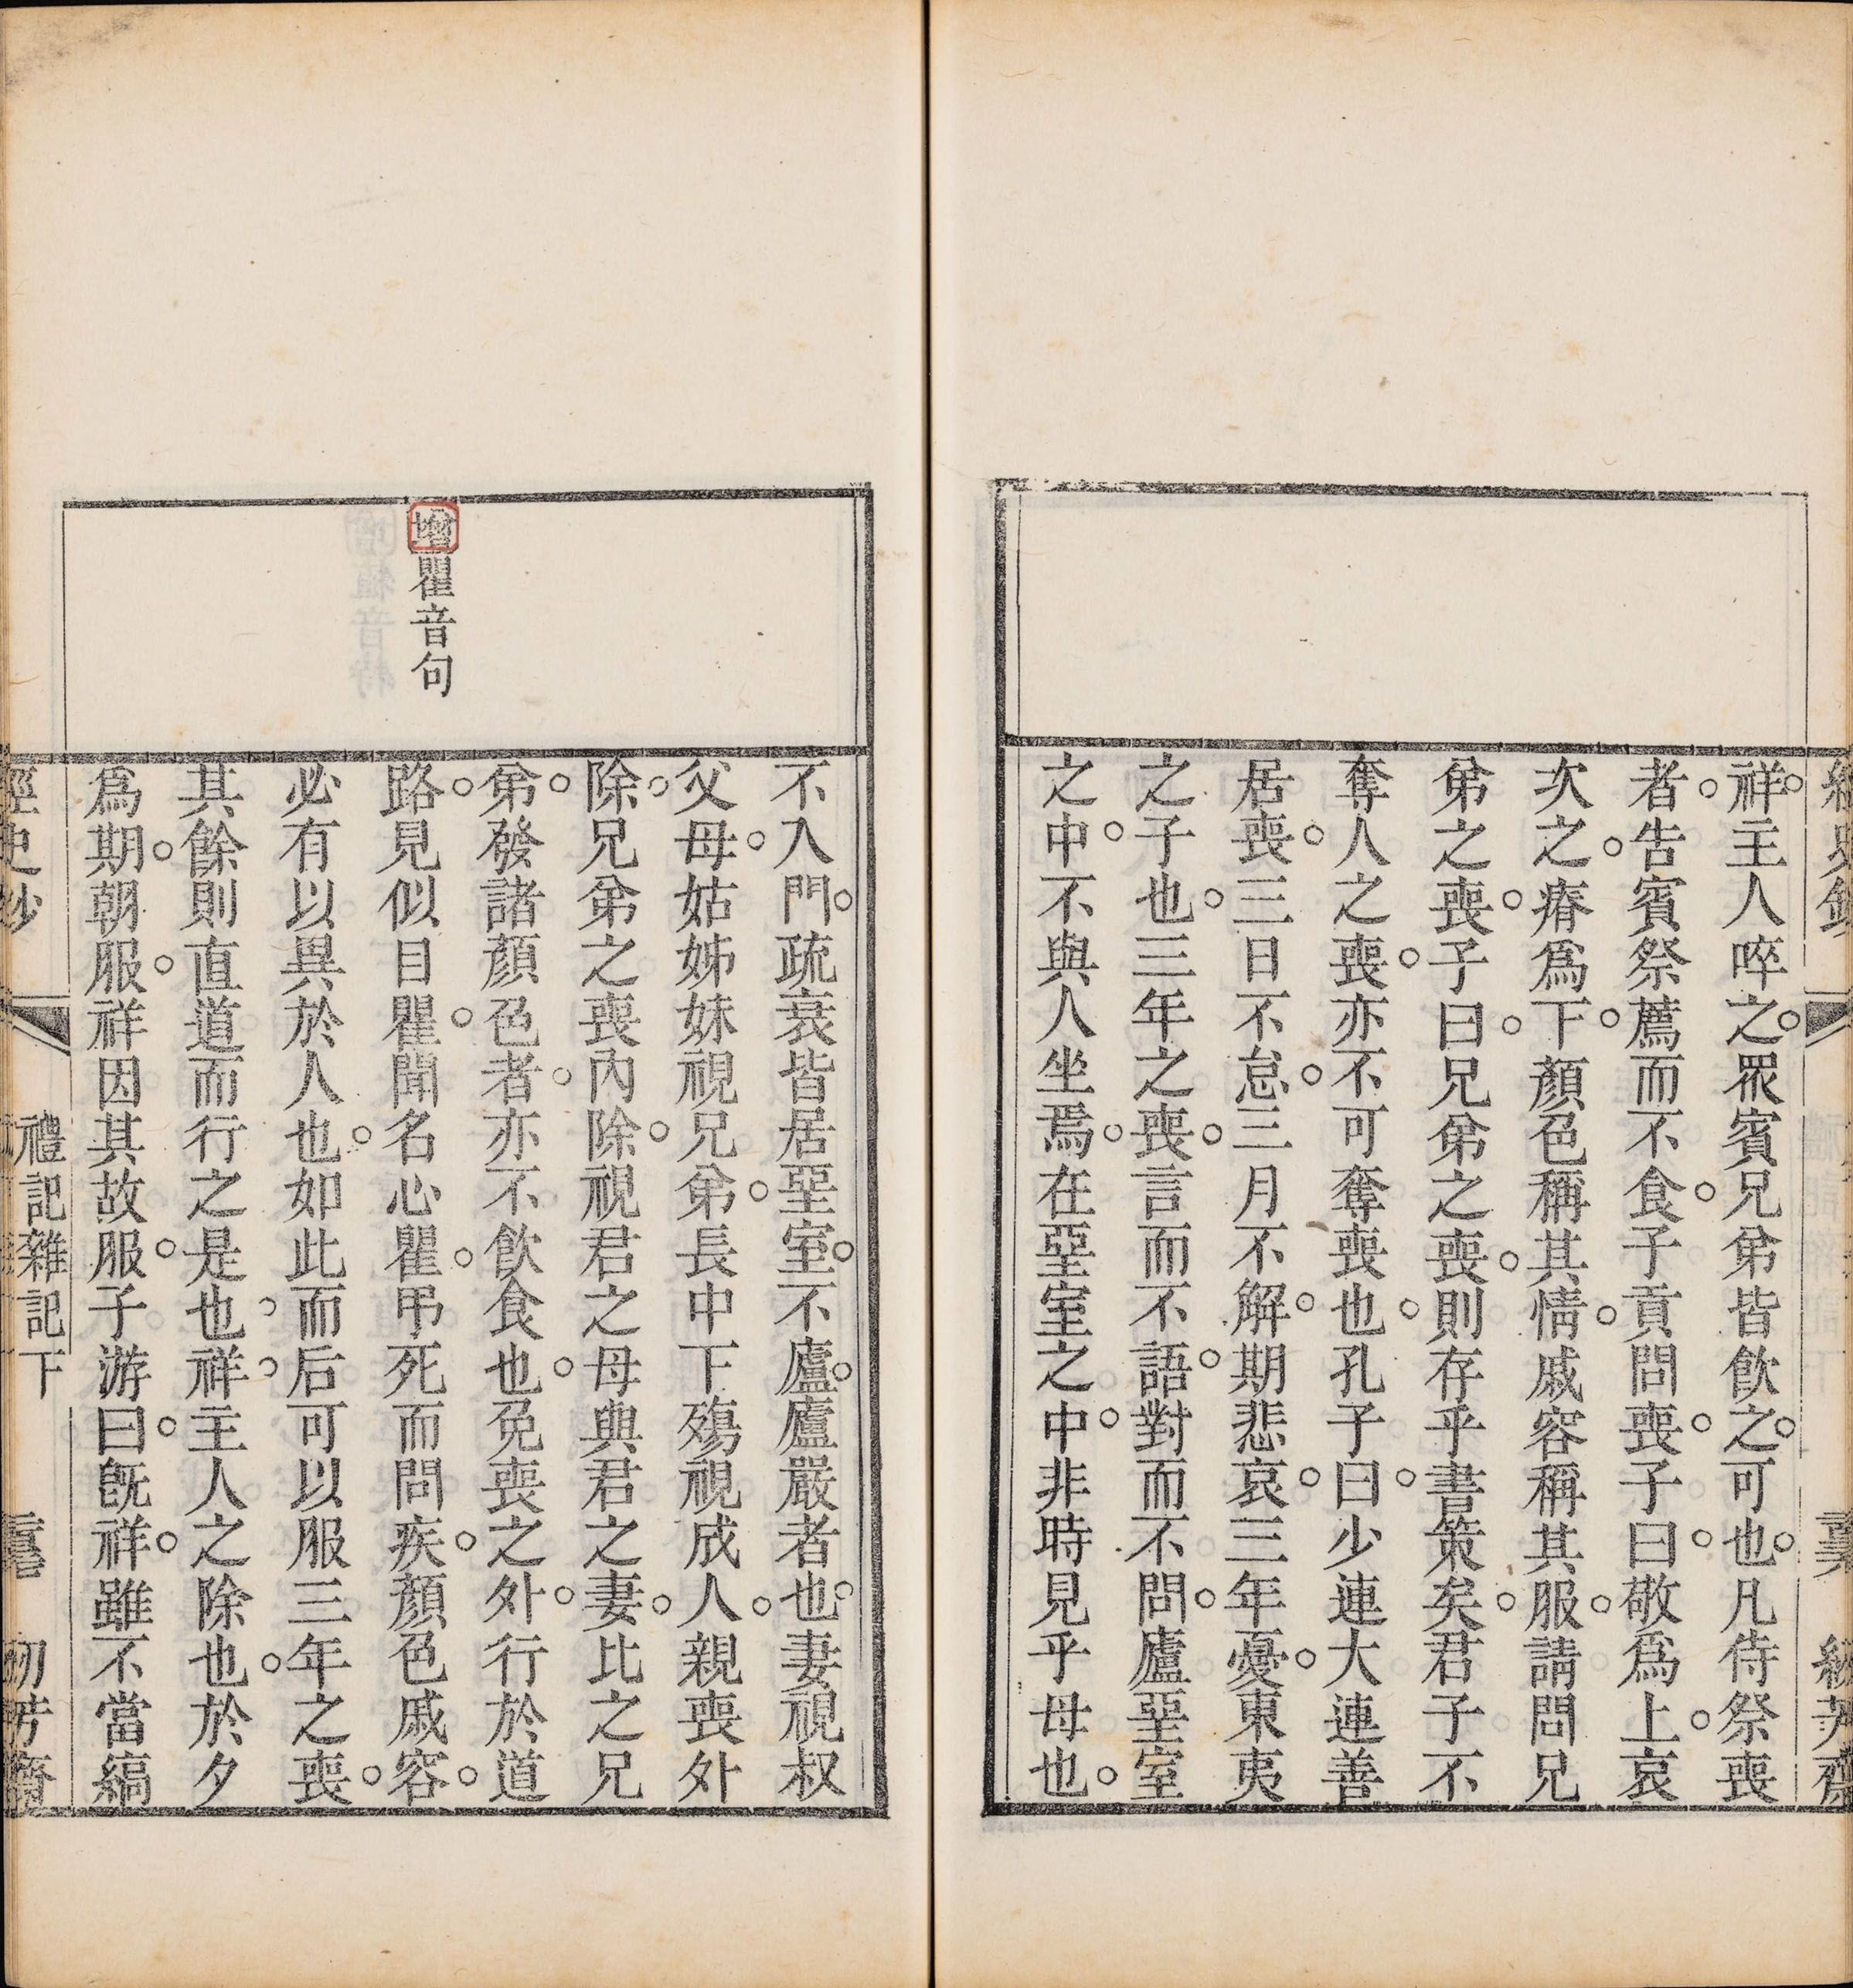 祥主人啐之眾賓兄弟皆飲之可也凡侍祭喪
者告賓祭薦而不食子貢問喪子曰敬爲上哀
次之瘠爲下顏色稱其情戚容稱其服請問兄
弟之喪子曰兄弟之喪則存乎書策矣君子不
奪人之喪亦不可奪喪也孔子曰少連大連善
居喪三日不怠三月不解期悲哀三年憂東夷
之子也三年之喪言而不語對而不問廬堊室
之中不與人坐焉在堊室之中非時見乎母也
不入門疏衰皆居堊室不廬廬嚴者也妻視叔
父母姑姊妹視兄弟長中下殤視成人親喪外
除兄弟之喪內除視君之母與君之妻比之兄
弟發諸顏色者亦不飲食也免喪之外行於道
增瞿音句
路見似目瞿聞名心瞿弔死而問疾顏色戚容
必有以異於人也如此而后可以服三年之喪
其餘則直道而行之是也祥主人之除也於夕
爲期朝服祥因其故服子游曰旣祥雖不當縞
經史鈔 禮記雜記下